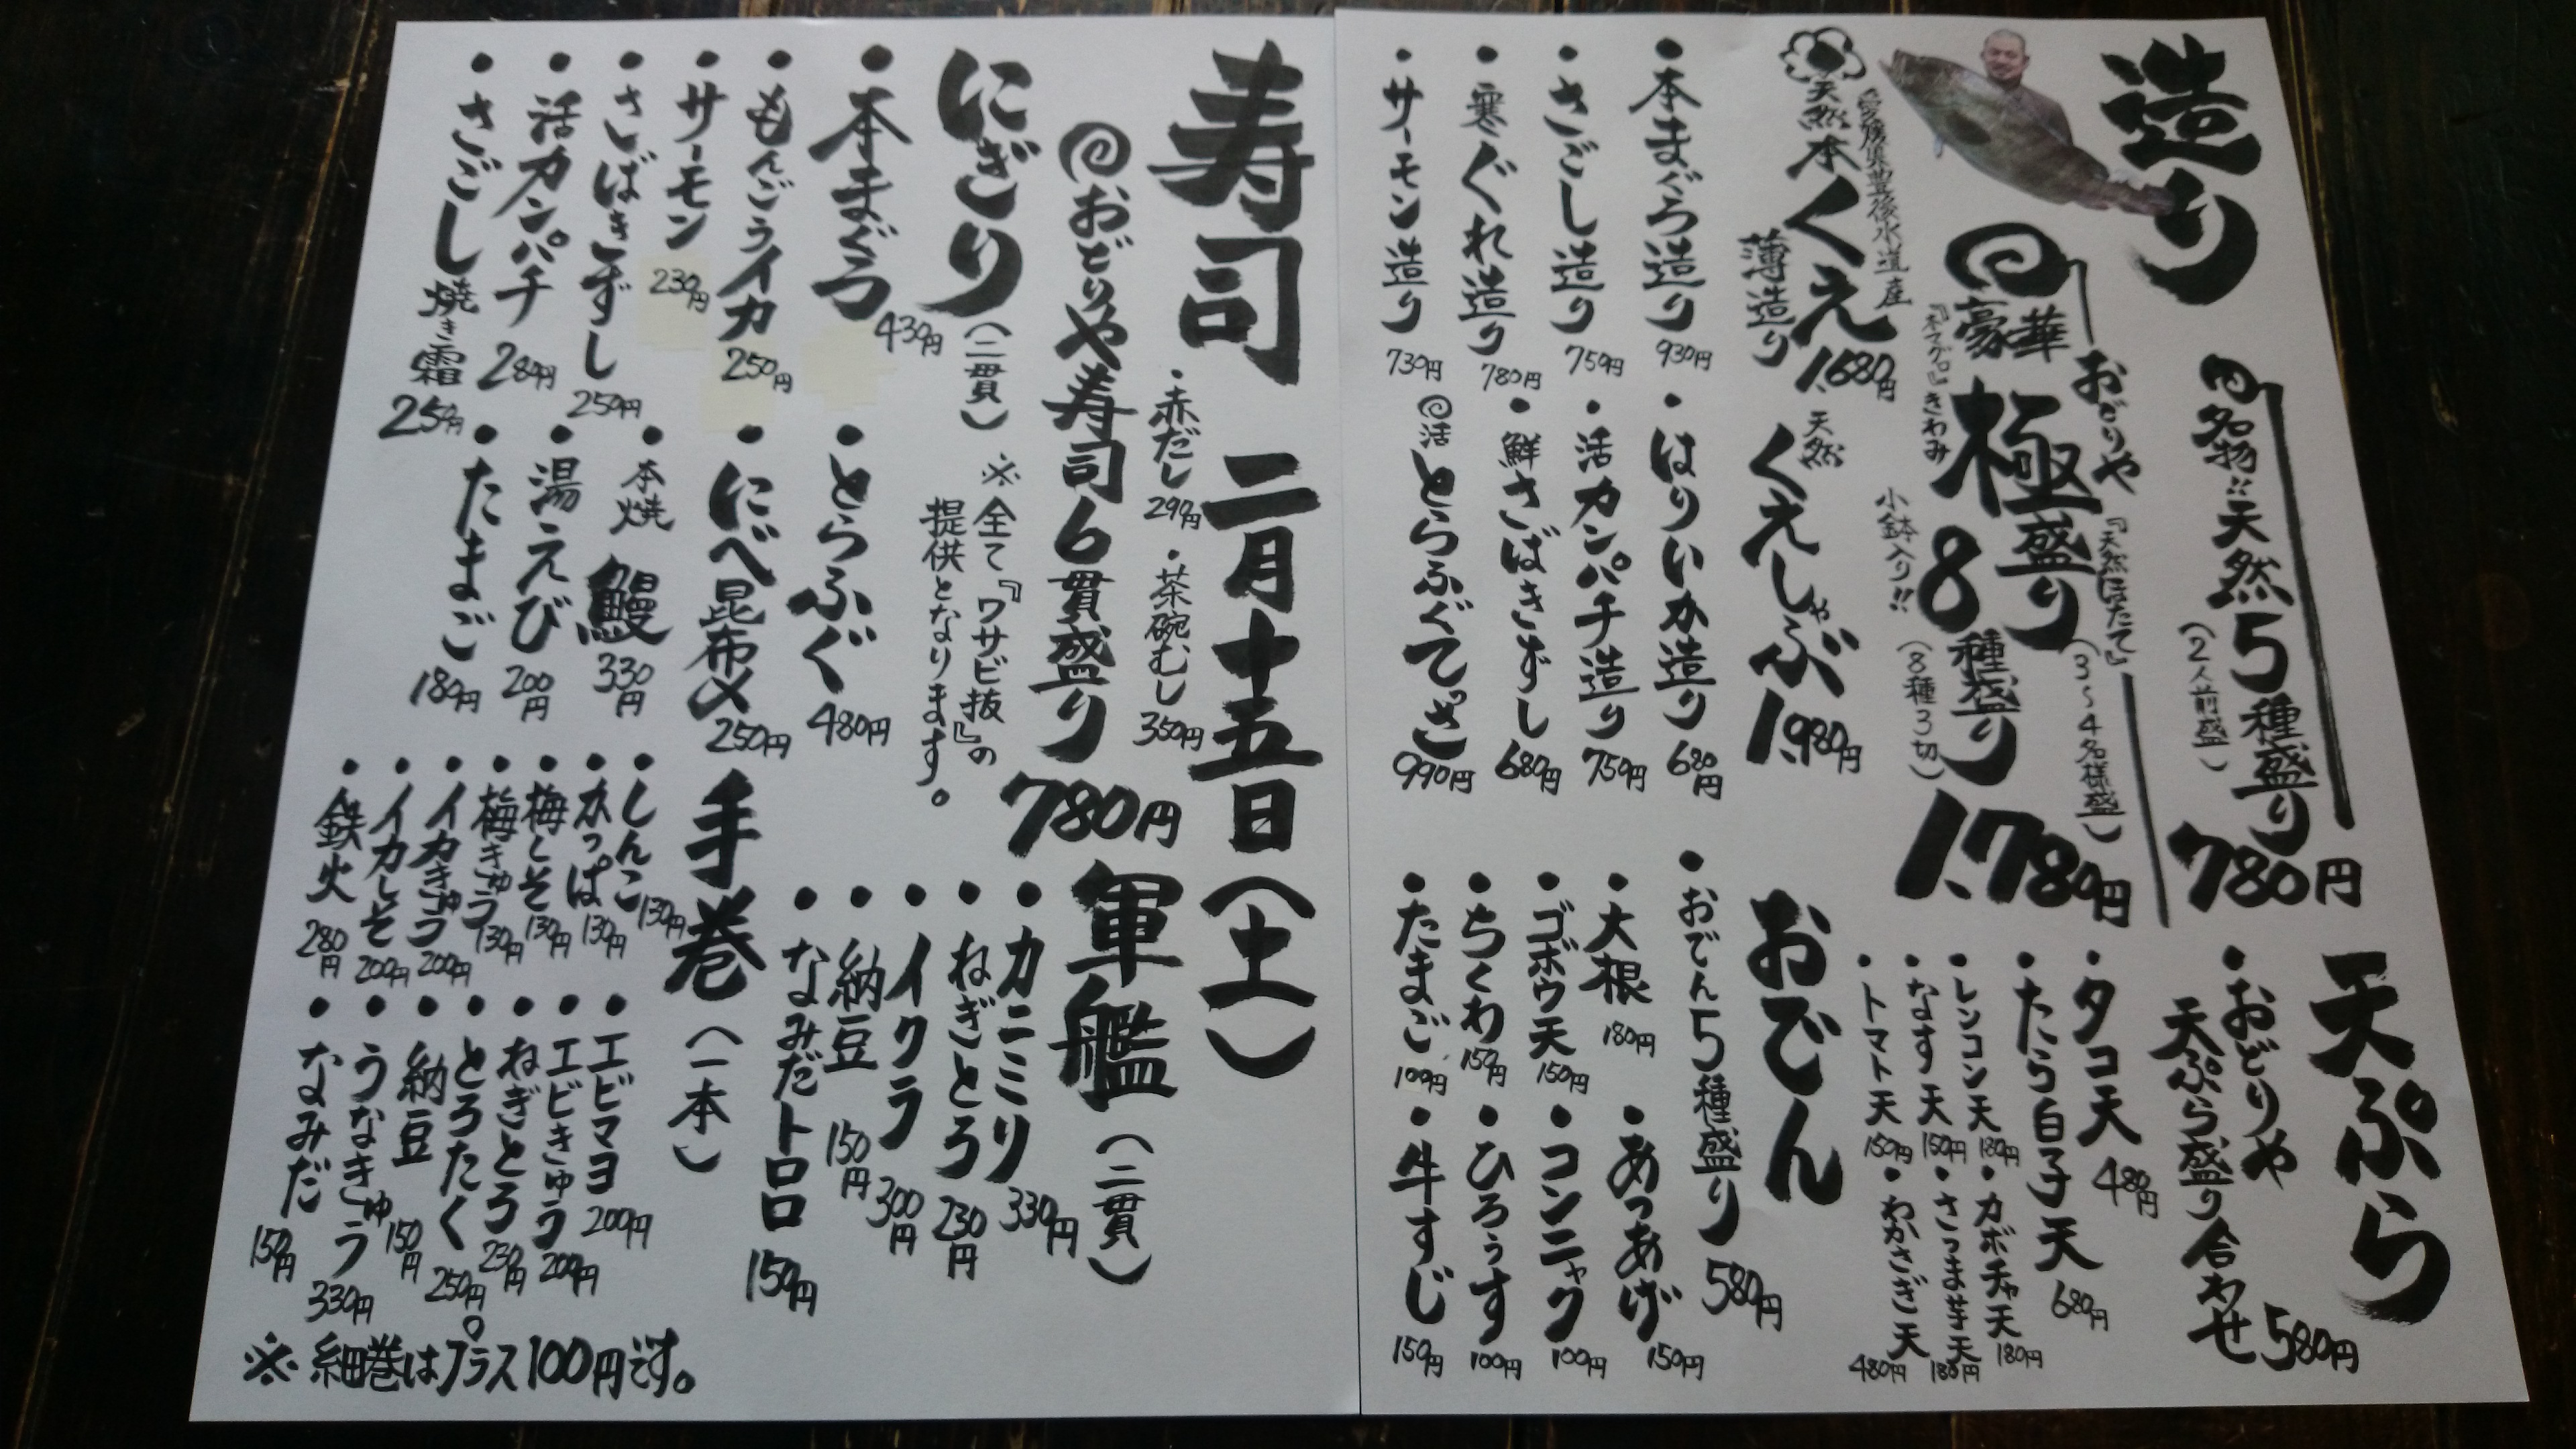 造り
名物!!天然5種盛り
(2人前盛)
780円
豪華
おどりや
『本マグロ』
きわみ
極盛り
『天然ほたて』
(3〜4名様盛)
小鉢入り!!
8種盛り
(8種3切)
1,780円
愛媛県豊後水道産
天然本くえ
薄造り
1,680円
天然
くえしゃぶ
1,980円
・本まぐろ造り 930円
・さごし造り 750円
・寒ぐれ造り 780円
・サーモン造り 730円
・はりいか造り 680円
・活カンパチ造り 750円
・鮮さばきずし 680円
活とらふぐてっさ 990円
天ぷら
・おどりや
天ぷら盛り合わせ 580円
・タコ天 480円
・たら白子天 680円
・レンコン天 180円
・なす天 150円
・トマト天 150円
・カボチャ天 180円
・さつま芋天 180円
・わかさぎ天 480円
おでん
・おでん5種盛り 580円
・大根 180円
・ゴボウ天 150円
・ちくわ 150円
・たまご 100円
・あつあげ 150円
・コンニャク 100円
・ひろうす 100円
・牛すじ 150円
寿司 二月十五日(土)
・赤だし 290円
・茶碗むし 350円
おどりや寿司6貫盛り 780円
にぎり(二貫)
※全て『ワサビ抜』の
提供となります。
・本まぐろ 430円
・もんごうイカ 250円
・サーモン 230円
・さばきずし 250円
・活カンパチ 280円
・さごし焼き霜 250円
・とらふぐ 480円
・にべ昆布〆 250円
・本焼 鰻 330円
・湯えび 200円
・たまご 180円
軍艦(二貫)
・カニミソ 330円
・ねぎとろ 230円
・イクラ 300円
・納豆 150円
・なみだトロロ 150円
手巻(一本)
・しんこ 130円
・かっぱ 130円
・梅しそ 130円
・梅きゅう 130円
・イカきゅう 200円
・イカしそ 200円
・鉄火 280円
・エビマヨ 200円
・エビきゅう 200円
・ねぎとろ 230円
・とろたく 250円
・納豆 150円
・うなきゅう 330円
・なみだ 150円
※細巻はプラス100円です。